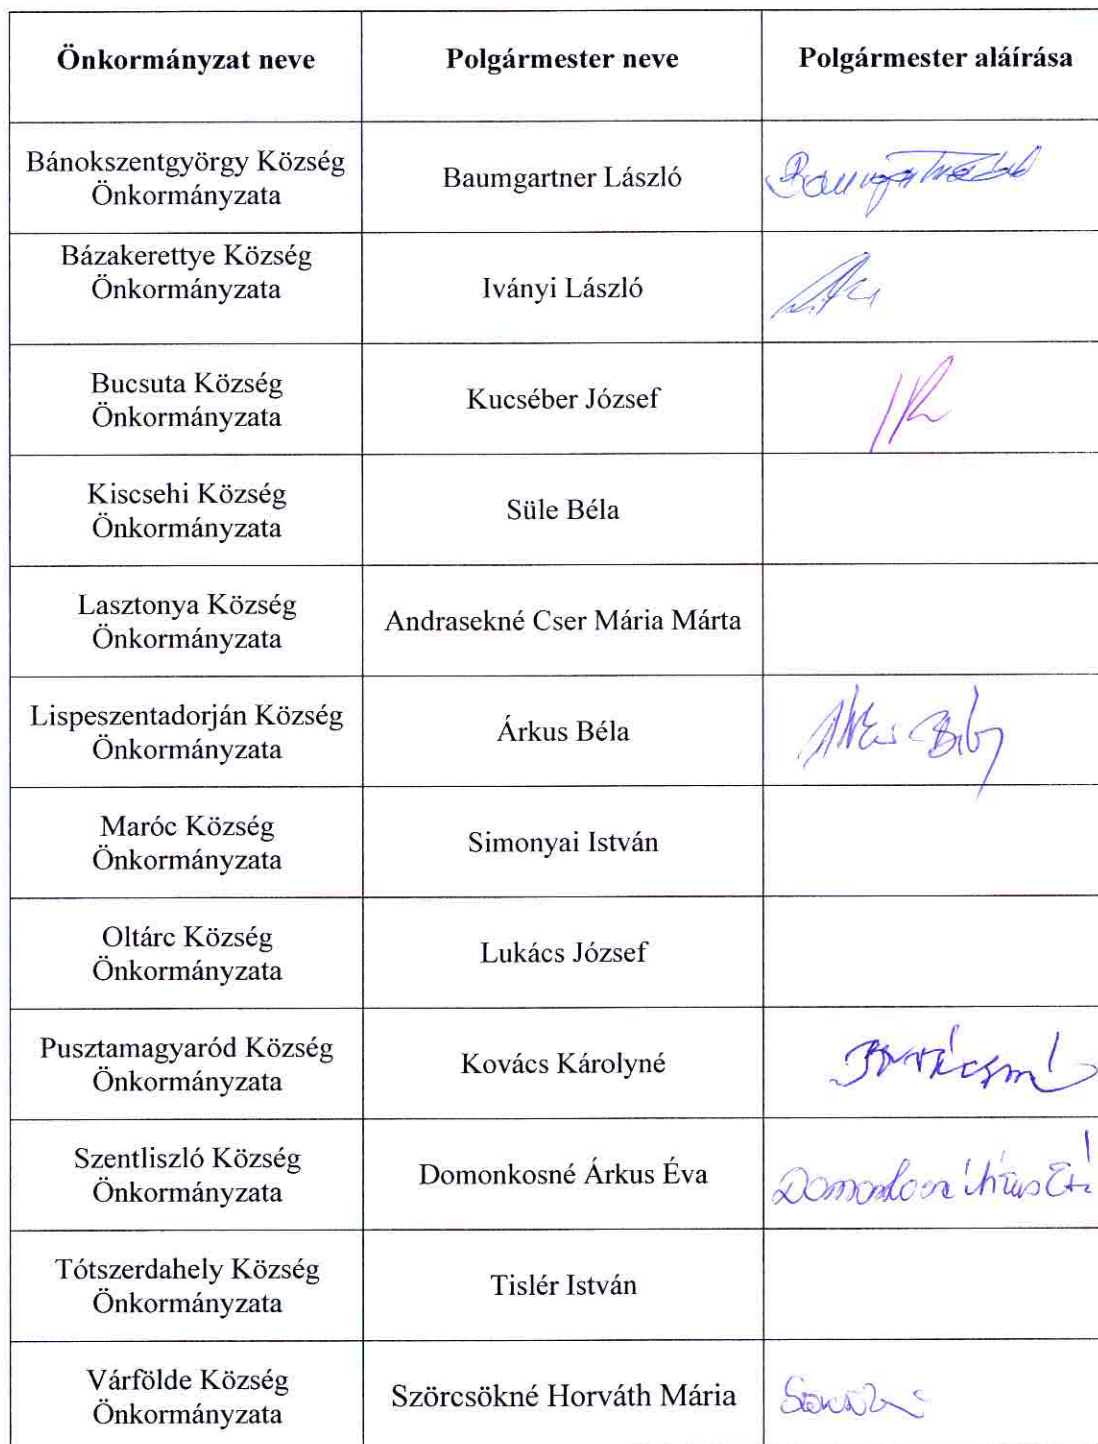 Önkormányzat neve Polgármester neve Polgármester aláírása
Bánokszentgyörgy Község
Önkormányzata
Baumgartner László
Bázakerettye Község
Önkormányzata
Iványi László
Bucsuta Község
Önkormányzata
Kucséber József
Kiscsehi Község
Önkormányzata
Süle Béla
Lasztonya Község
Önkormányzata
Andrasekné Cser Mária Márta
Lispeszentadorján Község
Önkormányzata
Árkus Béla
Maróc Község
Önkormányzata
Simonyai István
Oltárc Község
Önkormányzata
Lukács József
Pusztamagyaród Község
Önkormányzata
Kovács Károlyné
Kovácsné
Szentliszló Község
Önkormányzata
Domonkosné Árkus Éva
Domonkosné Árkus Éva
Tótszerdahely Község
Önkormányzata
Tislér István
Várfölde Község
Önkormányzata
Szörcsökné Horváth Mária